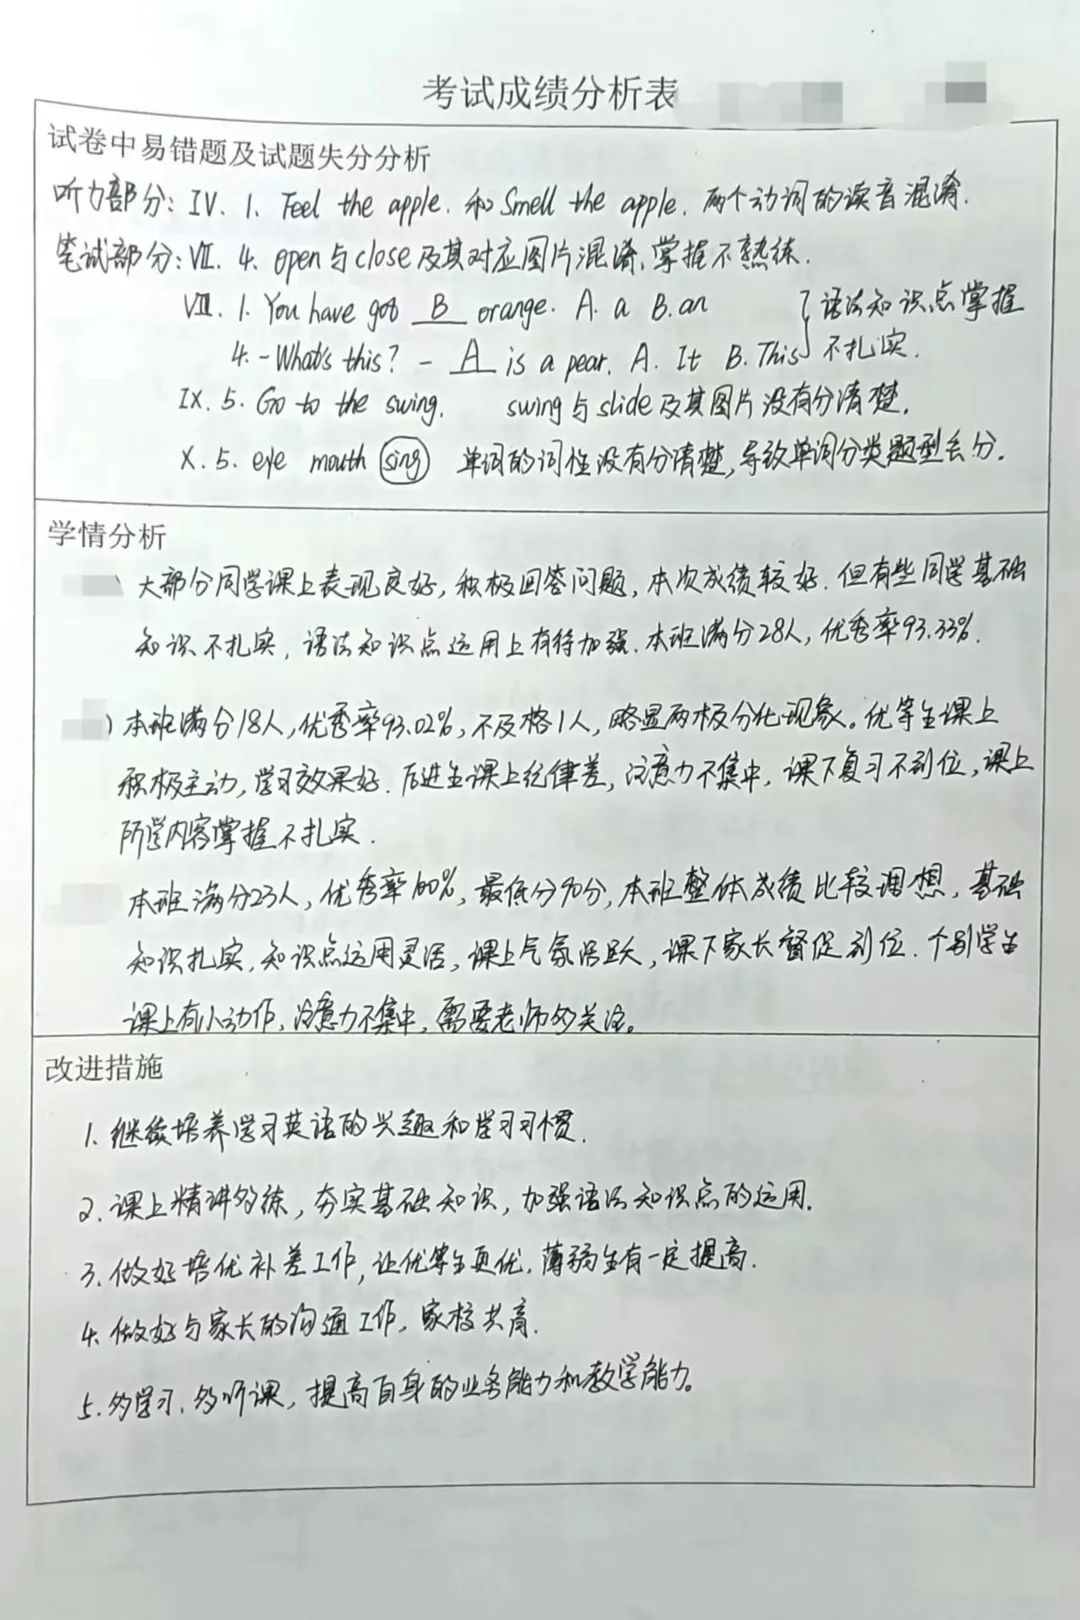 考试成绩分析表
试卷中易错题及试题失分分析
听力部分: IV. 1. Feel the apple. 和 Smell the apple. 两个动词的读音混淆.
笔试部分: VII. 4. open与close及其对应图片混淆, 掌握不熟练.
VIII. 1. You have got B orange. A. a B. an
4. -What's this? - A is a pear. A. It B. This
语法知识点掌握
不扎实.
IX. 5. Go to the swing. swing与slide及其图片没有分清楚.
X. 5. eye mouth sing 单词的词性没有分清楚, 导致单词分类题型丢分.
学情分析
大部分同学课上表现良好, 积极回答问题, 本次成绩较好. 但有些同学基础
知识不扎实, 语法知识点运用上有待加强. 本班满分28人, 优秀率93.33%.
) 本班满分18人, 优秀率93.02%, 不及格1人, 略显两极分化现象。优等生课上
积极主动, 学习效果好. 后进生课上纪律差, 注意力不集中, 课下复习不到位, 课上
所学内容掌握不扎实.
本班满分23人, 优秀率100%, 最低分90分, 本班整体成绩比较理想, 基础
知识扎实, 知识点运用灵活, 课上气氛活跃, 课下家长督促到位. 个别学生
课上有小动作, 注意力不集中, 需要老师多关注。
改进措施
1. 继续培养学习英语的兴趣和学习习惯.
2. 课上精讲多练, 夯实基础知识, 加强语法知识点的运用.
3. 做好培优补差工作, 让优等生更优, 薄弱生有一定提高.
4. 做好与家长的沟通工作, 家校共育.
5. 多学习, 多听课, 提高自身的业务能力和教学能力。